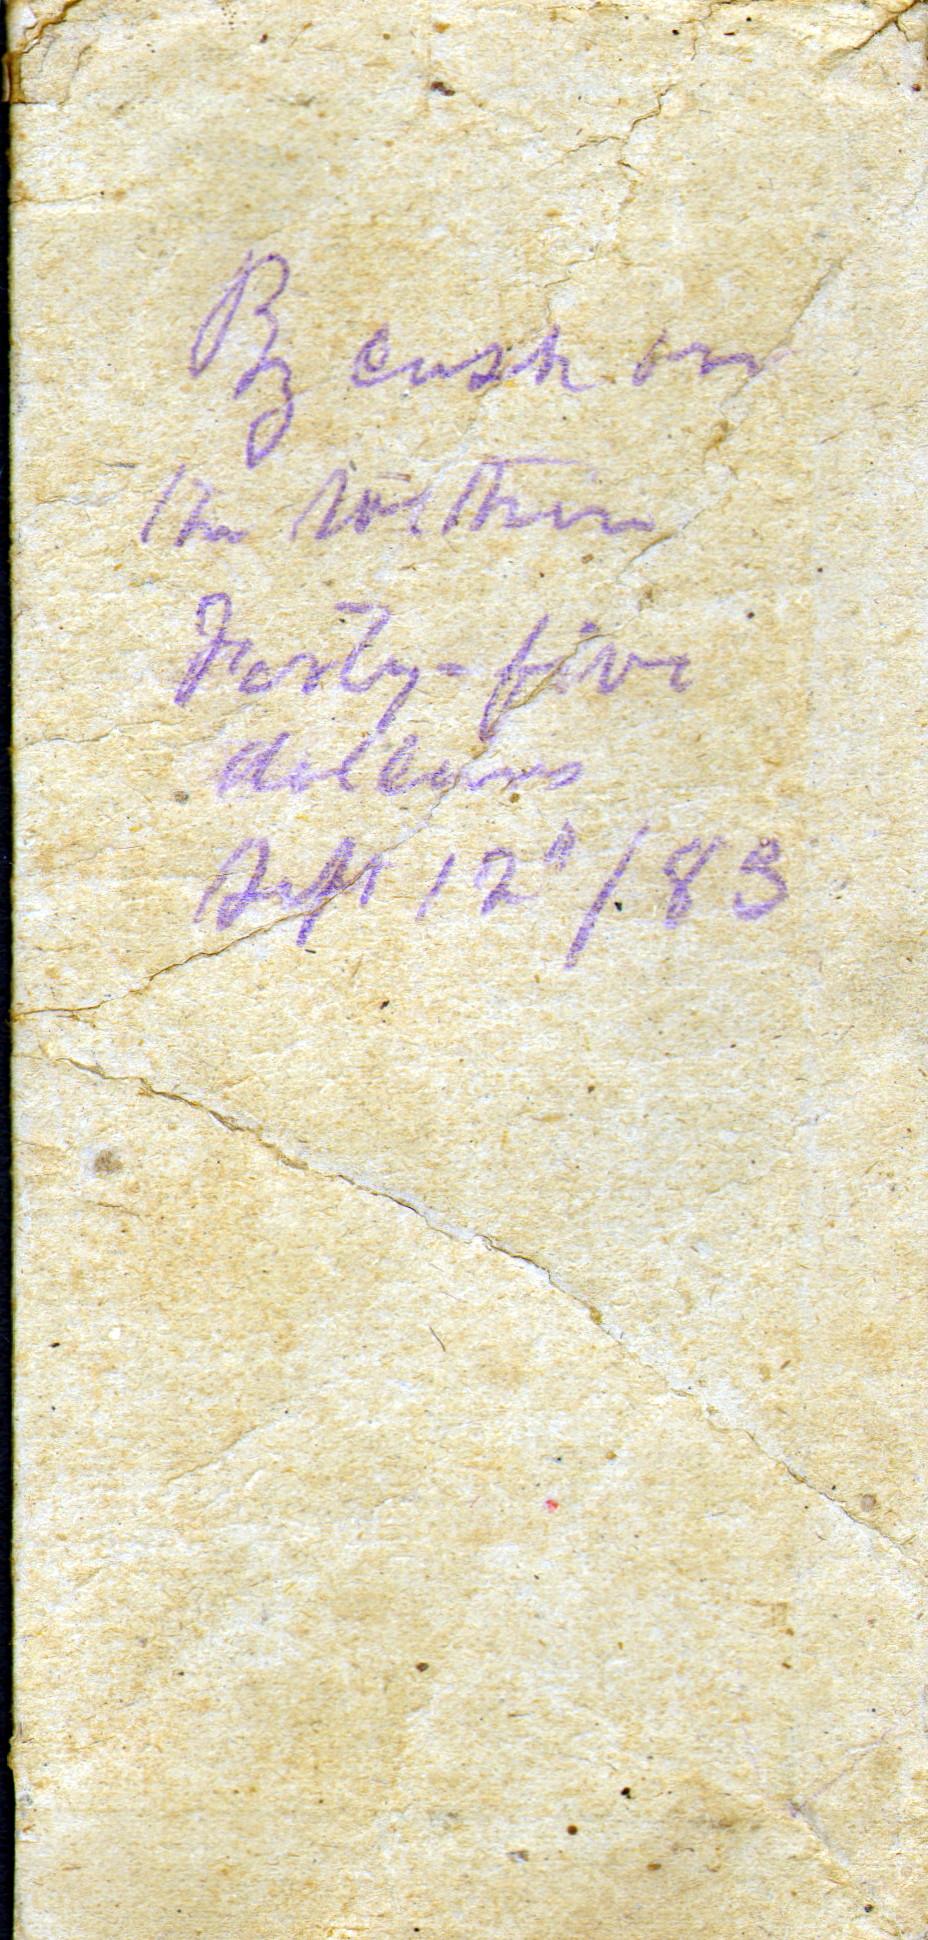 By cash on
the within
Forty-five
dollars
Sept 12d/83